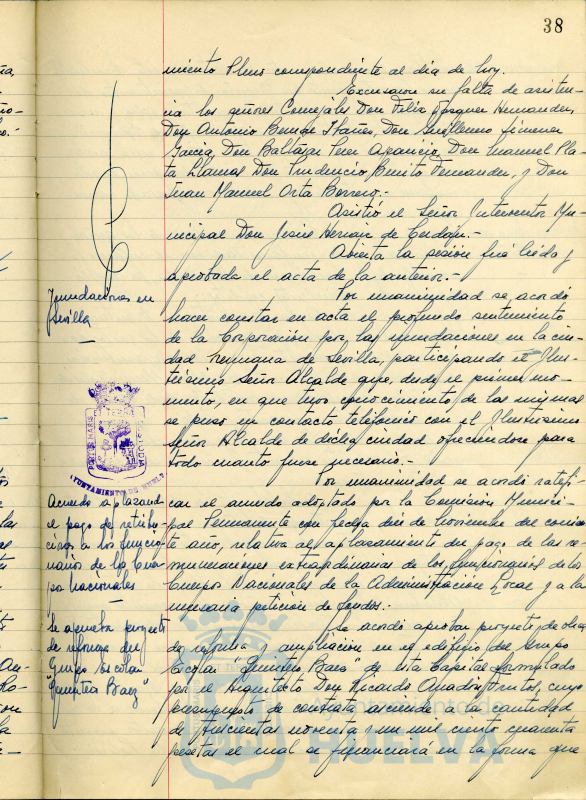 38
miento Pleno correspondiente al día de hoy.
Excusaron su falta de asisten-
cia los señores Concejales Don Félix Vázquez Hernández,
Don Antonio Ibañez, Don Guillermo Jimenez
García, Don Baltasar Perez Aparicio, Don Manuel Pla-
ta Llamas Don Prudencio Benito Fernandez, y Don
Juan Manuel Orta Borrero.-
Asistió el Señor Interventor Mu-
nicipal Don Jesús Hernaiz de
Abierta la sesión fué leída y
aprobada el acta de la anterior.-
Inundaciones en
Sevilla
Por unanimidad se acordó
hacer constar en acta el profundo sentimiento
de la Corporación por, las inundaciones en la ciu-
dad hermana de Sevilla, participando el Ilus-
trísimo Señor Alcalde que, desde el primer mo-
mento, en que tuvo conocimiento de las mismas
se puso en contacto telefónico con el Ilustrísimo
Señor Alcalde de dicha ciudad ofreciéndose para
todo cuanto fuese necesario.-
PORT MARIS ET TERRE CUSTODIA
AYUNTAMIENTO DE HUELVA
Acuerdo aplazando
el pago de retribu-
ciones a los funcio-
narios de los Cuer-
pos nacionales
Por unanimidad se acordó ratifi-
car el acuerdo adoptado por la Comisión Munici-
pal Permanente con fecha diez de Noviembre del corrien-
te año, relativa al aplazamiento del pago de las re-
muneraciones extraordinarias de los funcionarios de los
Cuerpos Nacionales de la Administración Local y a la
necesaria petición de fondos.-
Se aprueba proyecto
de reforma del
Grupo Escolar
"Quintero Baez"
Se acordó aprobar proyecto de obras
de reforma y ampliación en el edificio del Grupo
Escolar "Quintero Baez" de esta Capital formulado
por el Arquitecto Don Ricardo Anadón Frutos, cuyo
presupuesto de contrata asciende a la cantidad
de trescientas noventa y un mil ciento cuarenta
pesetas el cual se financiará en la forma que
Ayuntamiento de
HUELVA